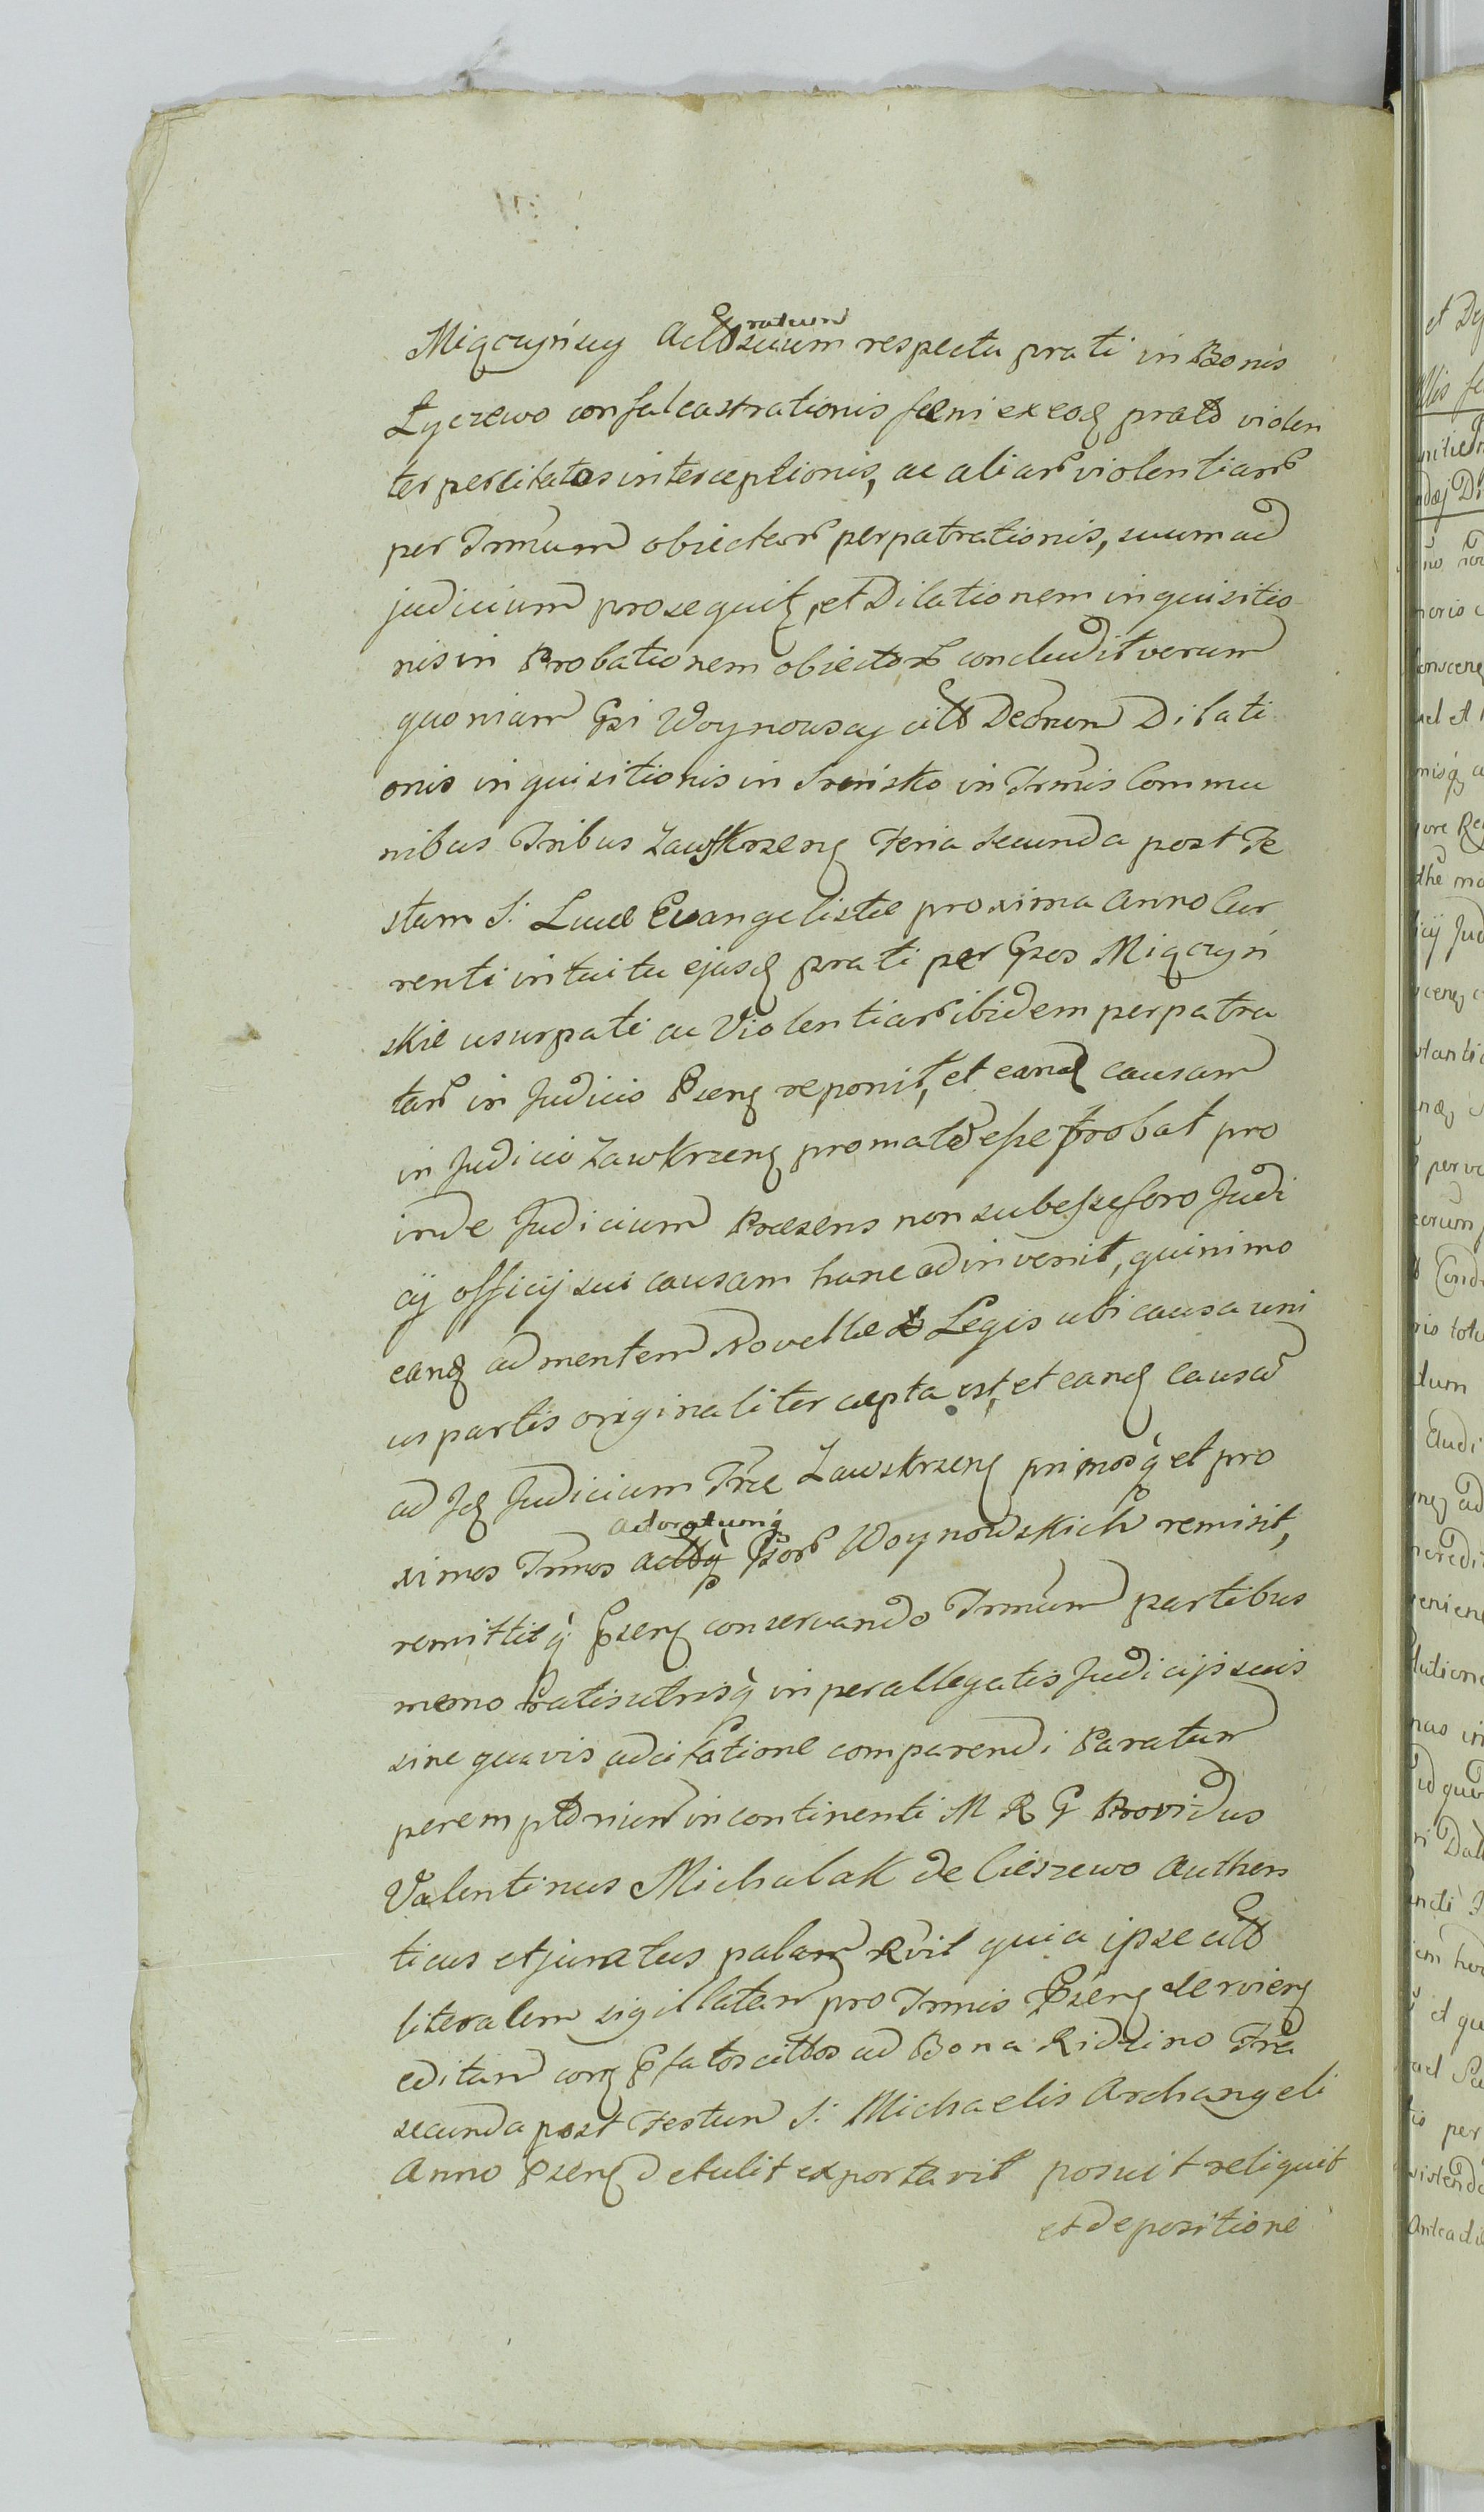 Miączyńscy Actoratum suum respectu prati in Bonis
Łyczewo confalcastrationis fœni ex eoq prato violen
ter per citatos interceptionis, ac aliar violentiar
per Trmum obiectar perpatrationis, suum ad
judicium prosequit, et Dilationem inquisitio
nis in Probationem obiector concludit verum
quoniam Gsi Woynowscy citt Decrum Dilati
onis inquisitionis in Srensko in Trmis Commu
nibus Tribus Zawskrzenq Feria secunda post Fe
stum S: Lucæ Evangelistæ proxima Anno Cur
renti intuitu ejusq prati per Gsos Miączyń
skie usurpati ac Violentiar ibidem perpatra
tar in Judicio Psenq reponit, et eanq causam
in Judicio Zawkrzenq promat esse probat pro
inde Judicium Præsens non subesse foro Judi
cij officij sui causam hanc adinvenit, quinimo
eanq ad mentem Novellæ Legis ubi causa uni
us partis originaliter cæpta est, et eanq causam
ad Iq Judicium Træ Zawskrzenq primosq et pro
ximos Trmos Actoratumq Gsor Woynowskich remisit,
remittitq Psenq conservando Trmum partibus
memoratis utrisq in perallegatis Judicijs suis
sine quavis adcitatione comparendi Paratum
peremptorium incontinenti M R G Providus
Valentinus Michalak de Cieszewo Authen
ticus et juratus palam Rvit quia ipse citt
literalem sigillatam pro Trmis Psenq servienq
editam conq Pfatos cittos ad Bona Kidzino Fria
secunda post Festum S: Michaelis Archangeli
Anno Psenq detulit exportavit posuit reliquit
et depositione